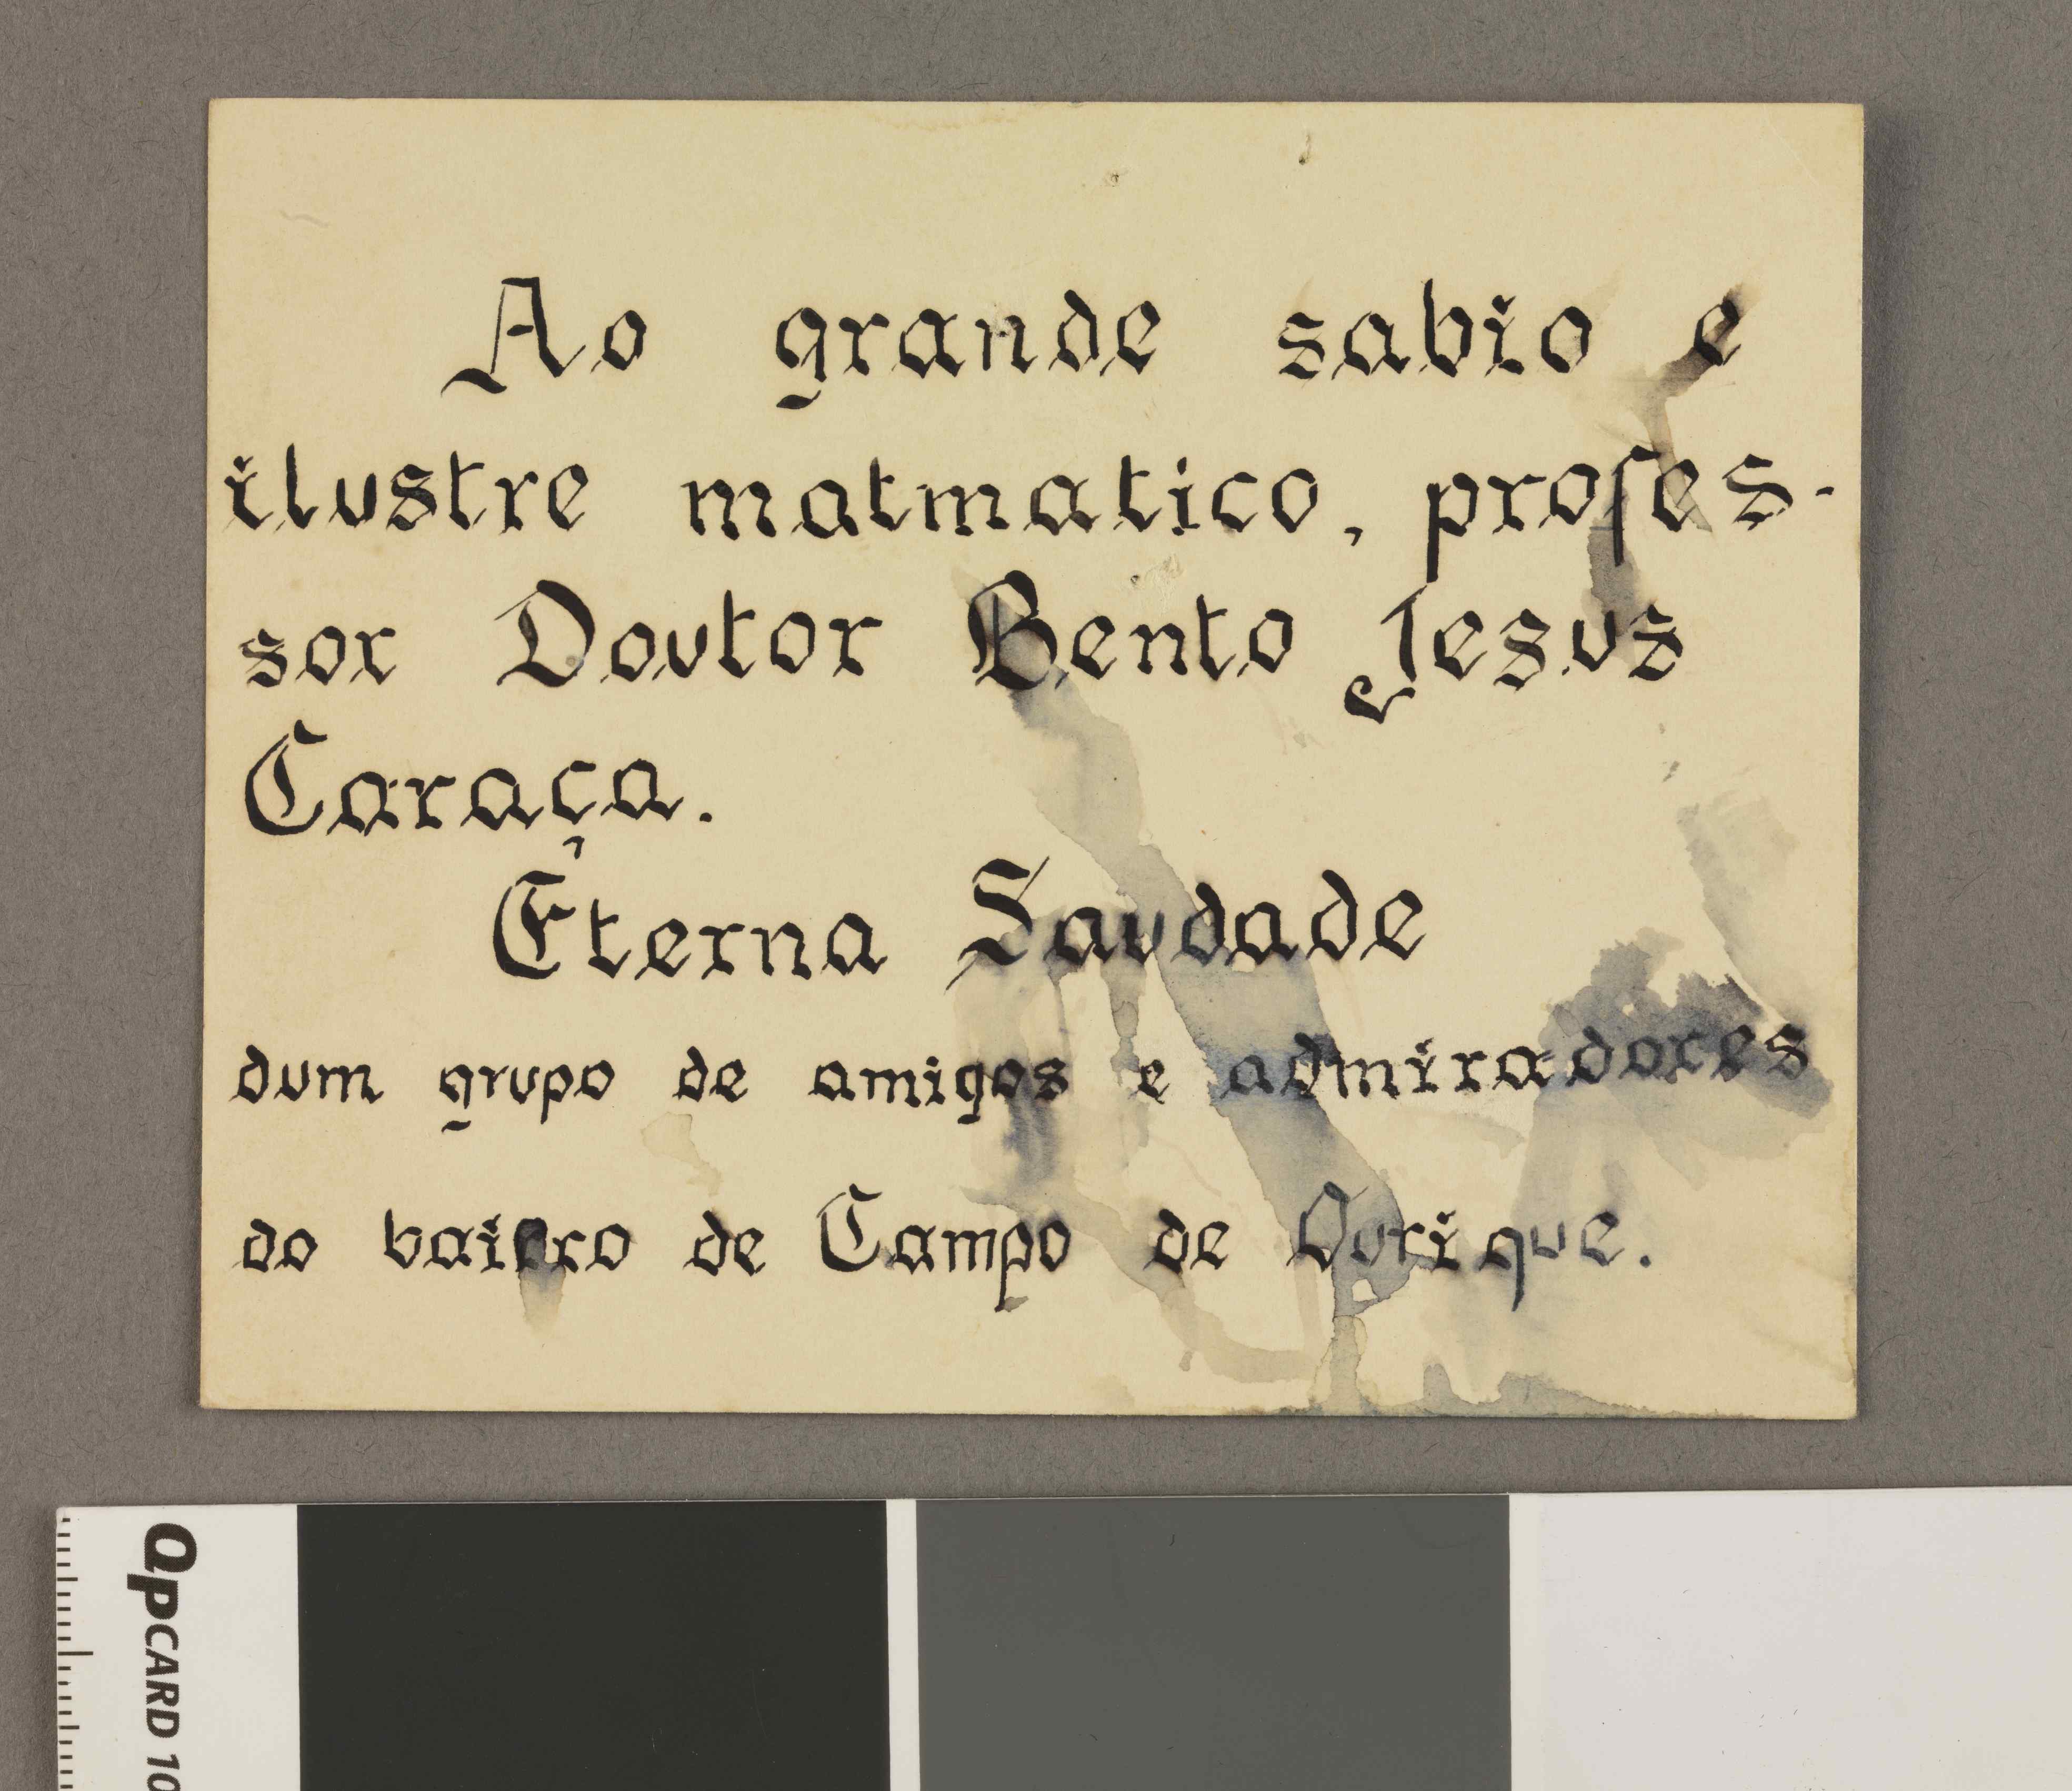 Ao grande sabio e
ilustre matmatico, profes-
sor Doutor Bento Jesus
Caraça.
Eterna Saudade
dum grupo de amigos e admiradores
do bairro de Campo de Ourique.
QPCARD 10